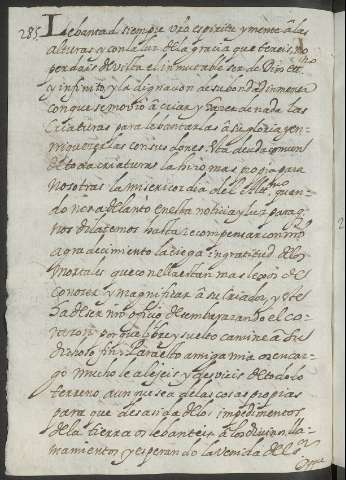 285 Lebantad siempre vro espiritu y mente a las
alturas y con la luz de la gracia que teneis, no
perdais de vista el inmutable ser de Dios etno
y infinito y la dignacion de su bondad inmensa
con que se movio a criar y hacer de nada las
criaturas para lebantarlas a su gloria y en
riquecerlas con sus dones. Esta deuda comun
de toda criaturas la hizo mas propia para
nosotras la misericordia del Altmo quan
do nos a delanto en esta noticia y luz para q
nos dilatemos hasta recompensar con nro
agradecimiento la ciega ingratitud de los
mortales que con ella estan mas lejos de
conocer y magnificar a su criador, y este
ha de ser nro oficio desembarazando el co
raçon por que libre y suelto camine a su
dichoso fin. Para esto amiga mia os encar
go mucho le alejeis y despicis de todo lo
terreno, aun que sea de las cosas propias
para que desasida de los impedimentos
de la tierra os lebanteis a los divinos lla
mamientos y esperando la venida del Sr